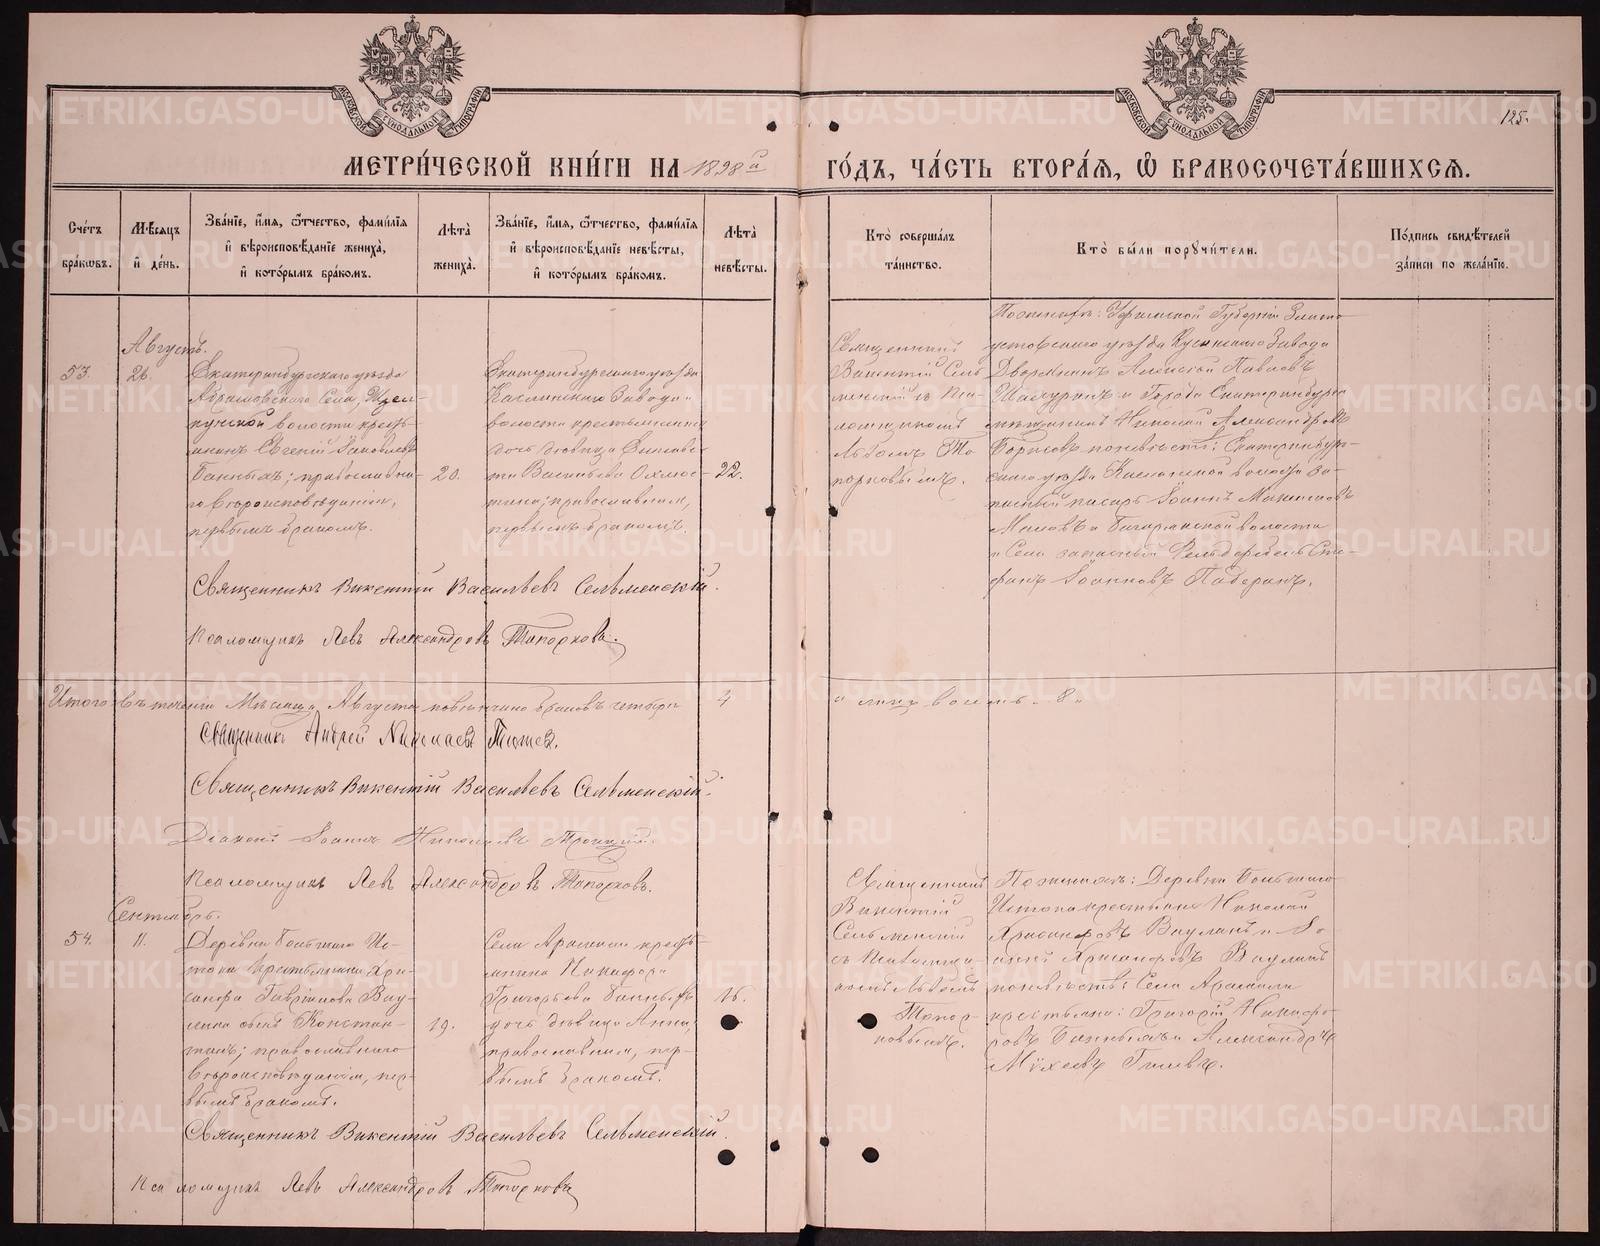 125.
МЕТРИ́ЧЕСКОЙ КНИ́ГИ НА 1898й ГО́ДЪ, ЧА́СТЬ ВТОРА́Я, Ѽ БРАКОСОЧЕТА́ВШИХСЯ.
Сче́тъ бра́кѡвъ.
Мѣ́сяцъ и҆ де́нь.
Зва́нїе, и҆́мя, ѻ҆́тчество, фами́лїя и҆ вѣроисповѣ́данїе жениха̀, и҆ кото́рымъ бра́комъ.
Лѣ́та жениха̀.
Зва́нїе, и҆́мя, ѻ҆́тчество, фами́лїя и҆ вѣроисповѣ́данїе невѣ́сты, и҆ кото́рымъ бра́комъ.
Лѣ́та невѣ́сты.
Кто̀ соверша́лъ та́инство.
Кто̀ бы́ли порꙋчи́тели.
По́дпись свидѣ́телей за́писи по жела́нїю.
Августъ.
53.
26.
Екатеринбургскаго уѣзда
Абрамовскаго Села,
кучской волости кресть-
янинъ Евгеній Іаковлевъ
Банныхъ; православна-
го вѣроисповѣданія,
первымъ бракомъ.
20.
Екатеринбургскаго уѣзда
Каслинскаго Завода и
волости крестьянина
дочь дѣвица
Васильева
православная,
первымъ бракомъ.
22.
Священникъ
Викентій Сель
менскій съ Пса-
ломщикомъ
Львомъ То
порковымъ.
По женихѣ: Уфимской Губерніи Злато
устовскаго уѣзда Кусинскаго Завода
Дворянинъ Алексѣй Павловъ
и Города Екатеринбурга
мѣщанинъ Николай Александровъ
Борисовъ по невѣстѣ: Екатеринбург-
скаго уѣзда Каслинской волости за-
пасный писарь Іоаннъ
волости
и Села запасный Фельдфебель Сте-
фанъ Іоанновъ
Священникъ Викентій Васильевъ Сельменскій.
Псаломщикъ Левъ Александровъ Топорковъ.
Итого въ теченіи Мѣсяца Августа повѣнчано браковъ четыре 4 " лицъ восемь - 8 "
Священникъ Андрей Николаевъ
Священникъ Викентій Васильевъ Сельменскій.
Діаконъ Іоаннъ Николаевъ Троицкій.
Псаломщикъ Левъ Александровъ Топорковъ.
Сентябрь.
54.
11.
Деревни Большаго Ис-
тока крестьянина Хри-
санфа Гавріилова Ваул-
ина сынъ Констан-
тинъ; православнаго
вѣроисповѣданія, пер-
вымъ бракомъ.
19.
Села Арамили кресть-
янина Никифора
Григорьева Банныхъ
дочь дѣвица Анна,
православная, пер-
вымъ бракомъ.
16.
Священникъ
Викентій
Сельменскій
съ Псаломщи-
комъ Львомъ
Топор-
ковымъ.
По женихѣ: Деревни Большаго
Истока крестьяне Николай
Хрисанфовъ Ваулинъ и Іо-
аннъ Хрисанфовъ Ваулинъ
по невѣстѣ: Села Арамили
крестьяне: Григорій Никифо-
ровъ Банныхъ и Александръ
Священникъ Викентій Васильевъ Сельменскій.
Псаломщикъ Левъ Александровъ Топорковъ
METRIKI.GASO-URAL.RU